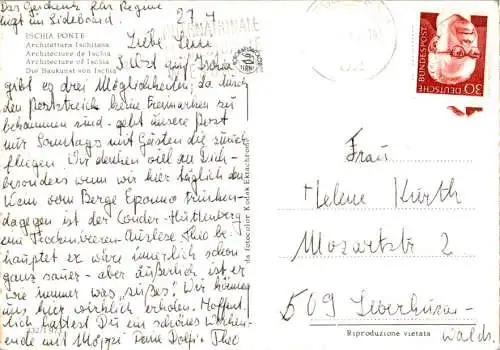 Das Geschenk für Regine
liegt im Sideboard.
27.7
ISCHIA PONTE
Architettura Ischitana
Architecture de Ischia
Architecture of Ischia
Die Baukunst von Ischia
Liebe
3. Ort auf Ischia
gibt es drei Möglichkeiten; da durch
den Poststreik keine Freimarken zu
bekommen sind - geht unsere Post
nur Sonntags mit Gästen die zurück
fliegen. Wir denken viel an Euch -
besonders wenn wir hier täglich den
vom Berge Epomeo trinken -
dagegen ist der
eine Trockenbeeren-Auslese. Theo be-
hauptet er wäre innerlich schon
ganz sauer - aber äußerlich ist er
wie immer was "süßes"! Wir können
uns hier wirklich erholen. Hoffent-
lich hattest Du ein schönes Wochen-
ende mit Deine Theo
da fotocolor Kodak Ektachrome
DEUTSCHE BUNDESPOST
30
Frau
Helene Kürth
Mozartstr 2
509 Leverkusen-
Walds.
Riproduzione vietata